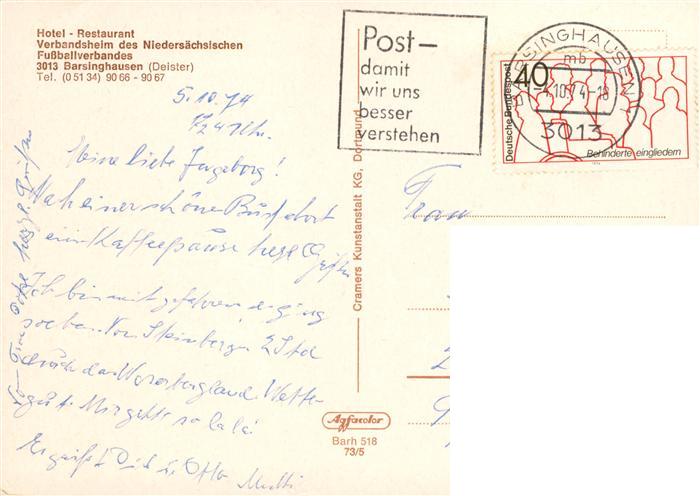 Hotel - Restaurant
Verbandsheim des Niedersächsischen
Fußballverbandes
3013 Barsinghausen (Deister)
Tel. (0 51 34) 90 66 - 90 67
5.10.74
Meine liebe Ingeborg!
Nach einer schöne Busfahrt
ein Kaffeepause herzl Grüße
Ich bin mitgefahren es ging
soeben. Von Steinbergen 2 Std
durch das Weserbergland Wetter
gut. Mir geht's so la la!
Es grüßt Dich u. Otto Mutti
herzl. Grüßen
Cramers Kunstanstalt KG, Dortmund
Agfacolor
Barh 518
73/5
Post-
damit
wir uns
besser
verstehen
BARSINGHAUSEN
mb
-4.10.74-18
3013
Deutsche Bundespost
40
Behinderte eingliedern
Frau